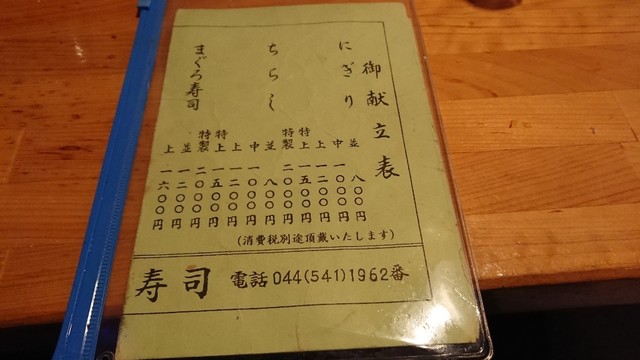 御献立表
にぎり
並 八〇〇円
中 一〇〇〇円
上 一二〇〇円
特上 一五〇〇円
特製 二〇〇〇円
ちらし
並 八〇〇円
中 一〇〇〇円
上 一二〇〇円
特上 一五〇〇円
特製 二〇〇〇円
まぐろ寿司
並 一二〇〇円
上 一六〇〇円
(消費税別途頂戴いたします)
寿司 電話044(541)1962番